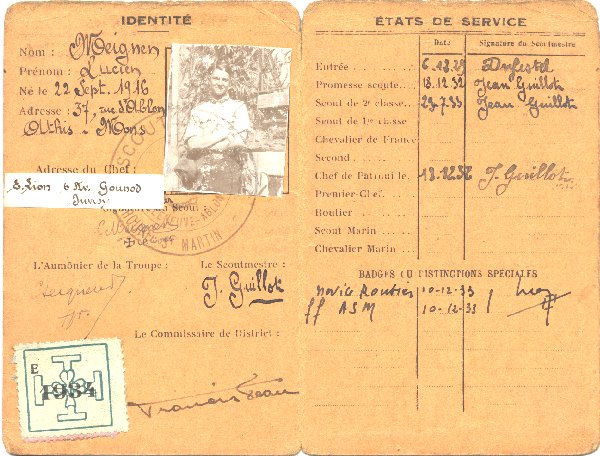 IDENTITÉ
Nom : Meignen
Prénom : Lucien
Né le 22 Sept. 1916
Adresse : 37, rue d'Ablon
Athis-Mons
Adresse du Chef :
S. Lion 6 Av. Gounod
Juvisy
Signature du Scout :
L. Meignen
SCOUTS
NEUVE-ABLON
St MARTIN
L'Aumônier de la Troupe :
Le Scoutmestre :
J. Guillot
Le Commissaire de District :
E
1934
ÉTATS DE SERVICE
Date
Signature du Scoutmestre
Entrée
Promesse scoute 18.12.32 Jean Guillot
Scout de 2e classe 29.7.33 Jean Guillot
Scout de 1re classe
Chevalier de France
Second
Chef de Patrouille 13.12.32 J. Guillot
Premier-Chef
Routier
Scout Marin
Chevalier Marin
BADGES OU DISTINCTIONS SPÉCIALES
novice Routier 10-12-33
ff ASM 10-12-33